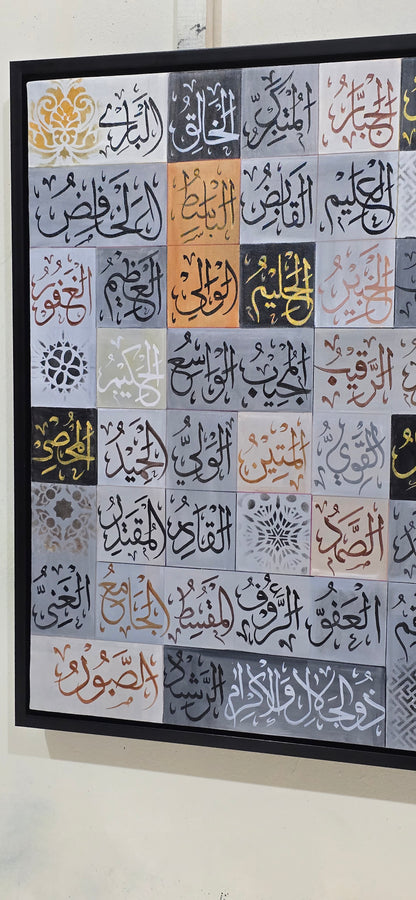 الجبار المتكبر الخالق البارئ
العليم القابض الباسط الخافض
الخبير الحليم الوالي العظيم الغفور
الرقيب المجيب الواسع الحكيم
القوي المتين الولي الحميد المحصي
الصمد القادر المقتدر
العفو الرءوف المقسط الجامع الغني
ذو الجلال والإكرام الرشيد الصبور